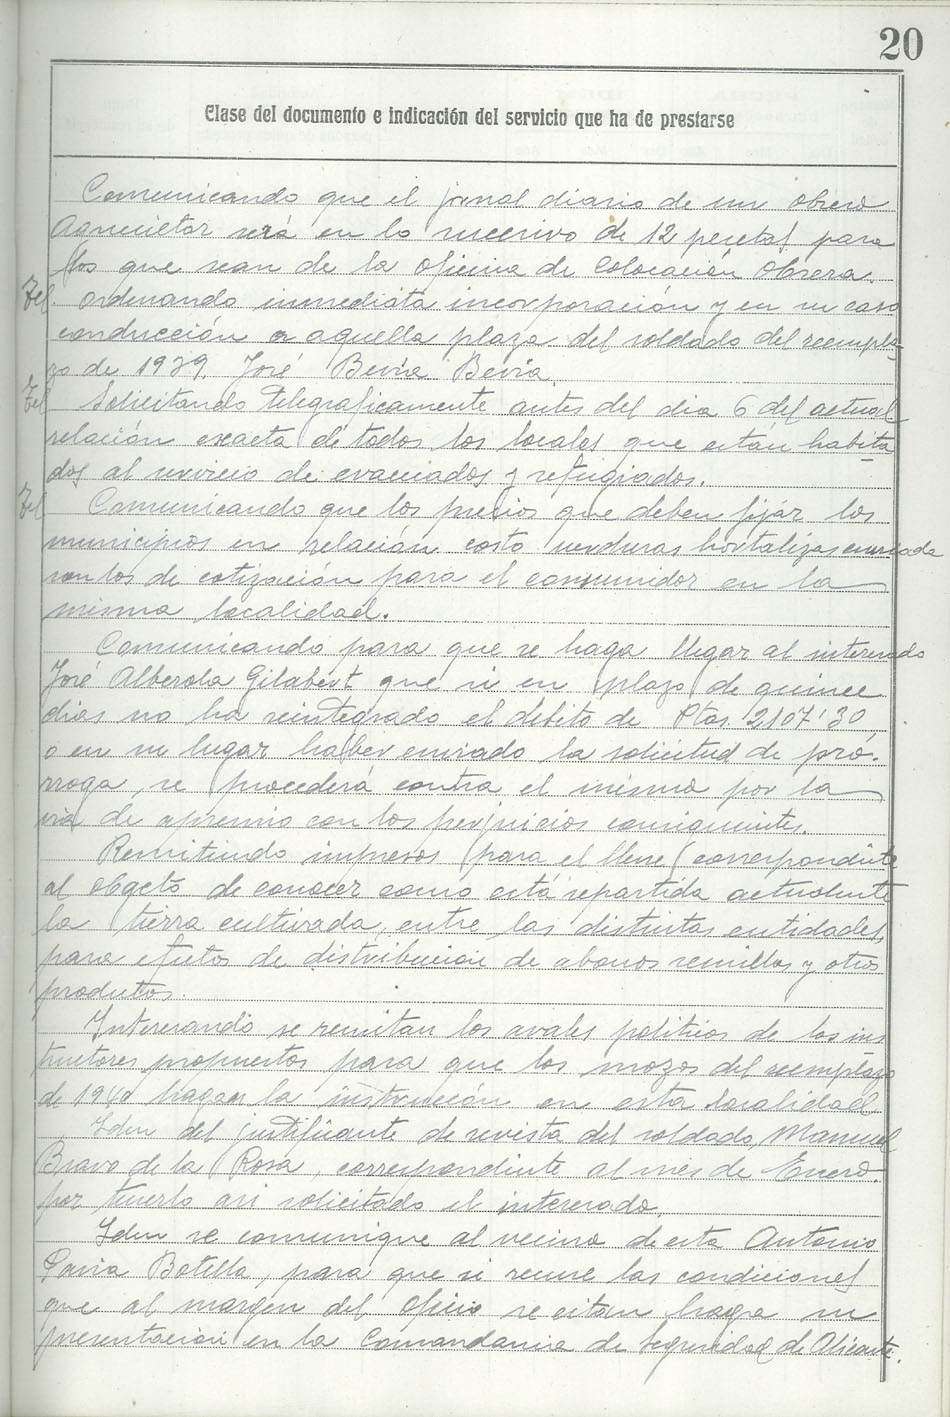 20
Clase del documento e indicación del servicio que ha de prestarse
Comunicando que el jornal diario de un obrero
Agricultor será en lo sucesivo de 12 pesetas para
los que sean de la Oficina de Colocación Obrera.
Tel. Ordenando inmediata incorporación y en su caso
conducción a aquella plaza del soldado del reempla-
zo de 1939. José Bevia Bevia.
Tel Solicitando telegraficamente antes del dia 6 del actual
relación exacta de todos los locales que están habita
dos al servicio de evacuados y refugiados.
Tel Comunicando que los precios que deben fijar los
municipios en relación costo verduras hortalizas enviada
son los de cotización para el consumidor en la
misma localidad.
Comunicando para que se haga llegar al interesado
José Alberola Gilabert que si en plazo de quince
dias no ha reintegrado el débito de Ptas. 2107'30
o en su lugar haber enviado la solicitud de pró-
rroga, se procederá contra el mismo por la
via de apremio con los perjuicios consiguientes.
Remitiendo impresos para el llene correspondiente
al objeto de conocer como está repartida actualmente
la tierra cultivada, entre las distintas entidades,
para efectos de distribución de abonos semillas y otros
productos.
Interesando se remitan los avales politicos de los ins
tructores propuestos para que los mozos del reemplazo
de 1940 hagan la instrucción en esta localidad
Idem del justificante de revista del soldado, Manuel
Bravo de la Rosa, correspondiente al mes de Enero.
por tenerlo asi solicitado el interesado.
Idem se comunique al vecino de esta Antonio
Botella, para que si reune las condiciones
que al margen del oficio se citan haga su
presentación en la Comandancia de Seguridad de Alicante.